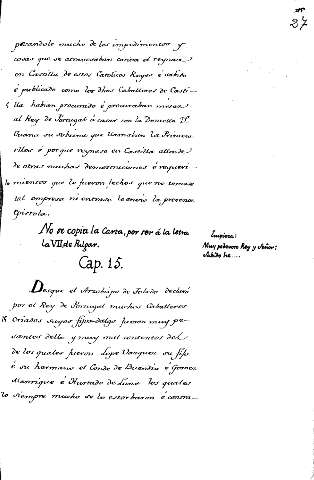 27
pesandole mucho de los impedimentos y
cosas que se atravesaban contra el reynar
en Castilla de estos Catolicos Reyes é sabido
é publicado como los dhos Caballeros de Casti-
lla habian procurado é procuraban meter
al Rey de Portugal é casar con la Doncella Dª
Juana su sobrina que llamaban la Princesa
ellos é porque reynase en Castilla allende
de otras muchas amonestaciones é requeri-
mientos que le fueron fechos que no tomase
tal empresa ni entrase le envio la presente
Epistola.
No se copia la Carta, por ser á la letra
la VII, de Pulgar.
Empieza:
Muy poderoso Rey y Señor:
Sabido he....
Cap. 15.
Desque el Arzobispo de Toledo declaró
por el Rey de Portugal muchos Caballeros
Criados suyos fijos-dalgo fueron muy pe-
santes dello y muy mal contentos del
de los quales fueron Lope Vazquez su fijo
é su hermano el Conde de Buendia é Gomez
Manrique é Hurtado de Luna los quales
siempre mucho se lo estorbaron é contra-